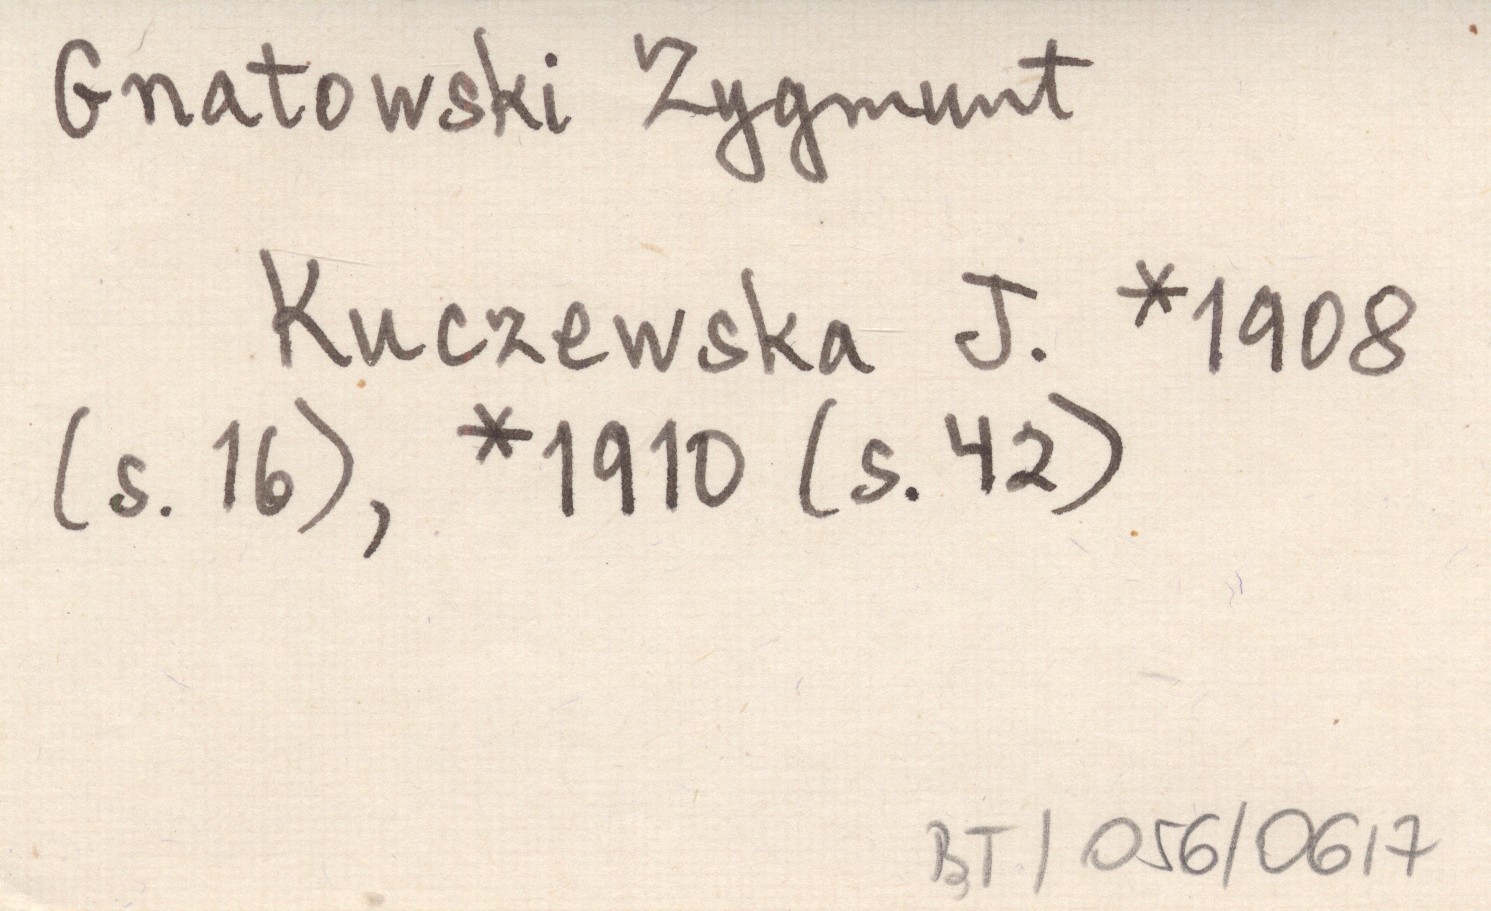 Gnatowski Zygmunt
Kuczewska J. *1908
(s. 16), *1910 (s. 42)
BT/056/0617